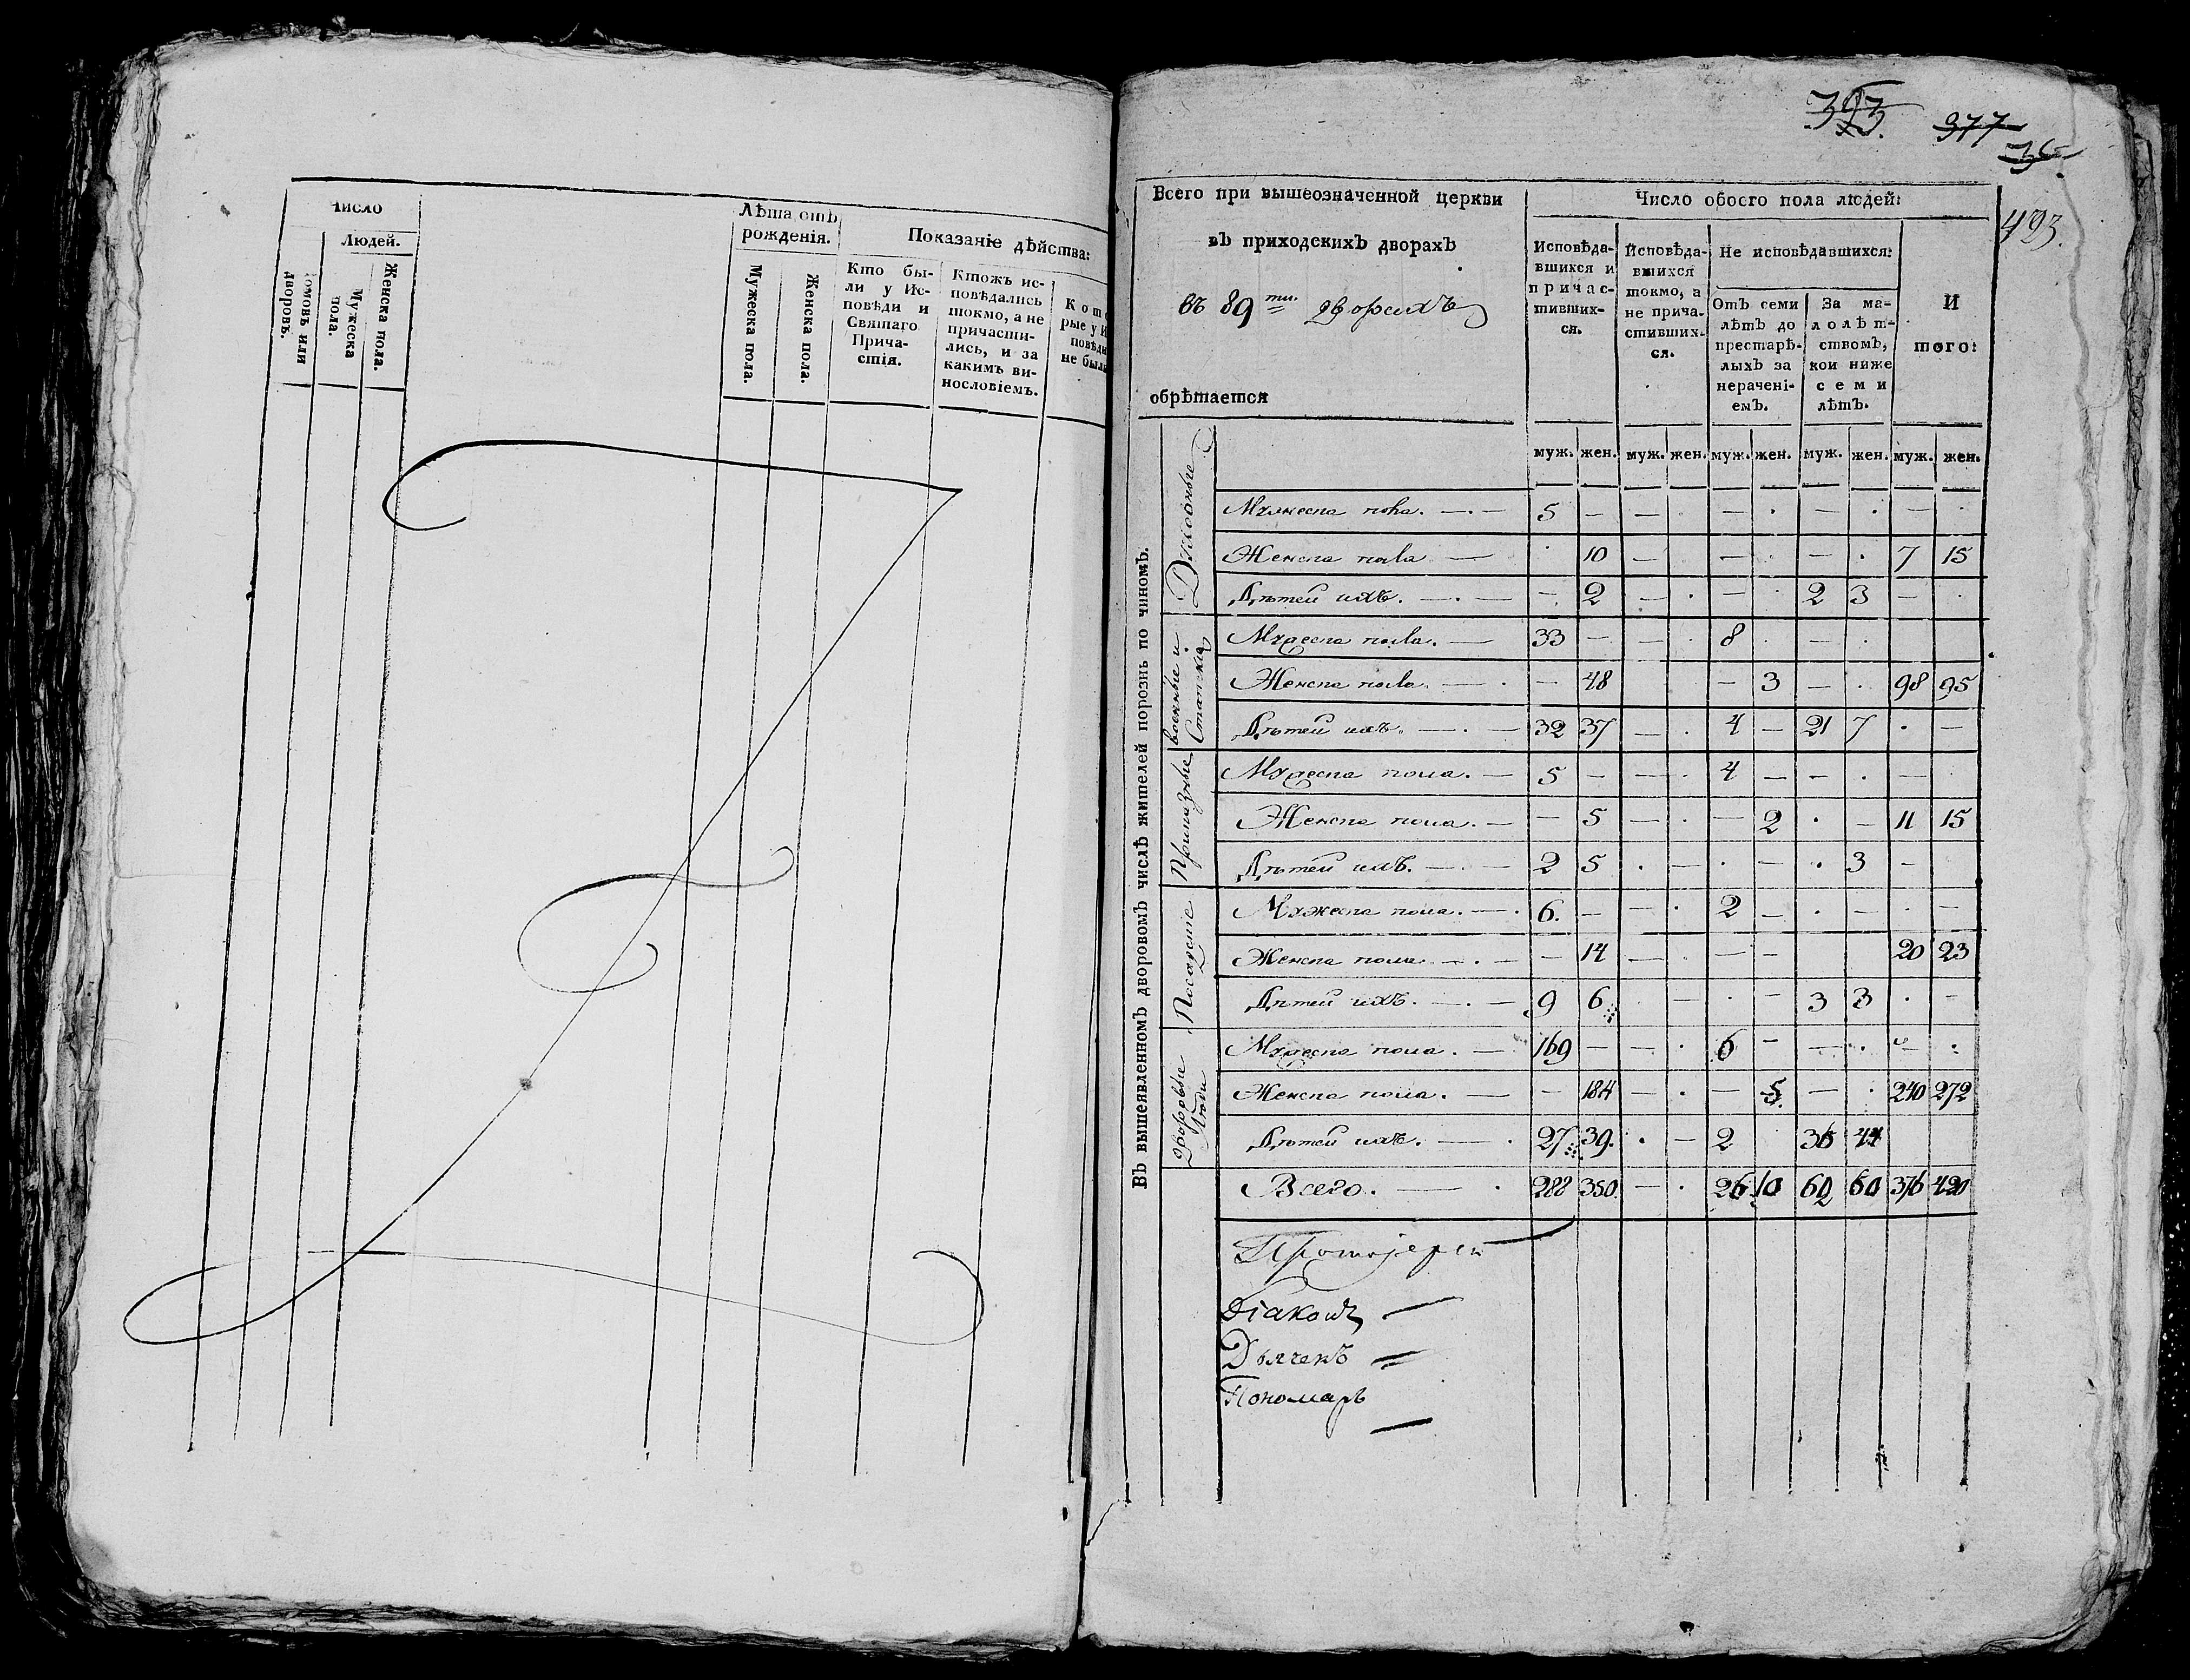 Число
Людей.
домовъ или дворовъ.
Мужеска пола.
Женска пола.
Лѣта отъ рожденія.
Мужеска пола.
Женска пола.
Показаніе дѣйства:
Кто бы-
ли у Ис-
повѣди и
Святаго
Прича-
стія.
Ктожъ ис-
повѣдались
токмо, а не
причасти-
лись, и за
какимъ ви-
нословіемъ.
Кото
рые у И
повѣди
не были
393
377
423.
Всего при вышеозначенной церкви
въ приходскихъ дворахъ
въ 89ти дворахъ
обрѣтается
Число обоего пола людей:
Исповѣда-
вшихся и
причас-
тивших-
ся.
Исповѣда-
вшихся
токмо, а
не прича-
стивших-
ся.
Не исповѣдавшихся:
Отъ семи
лѣтъ до
престарѣ-
лыхъ за
нерачені-
емъ.
За ма-
лолѣт-
ствомъ,
кои ниже
семи
лѣтъ.
И
того:
муж. жен. муж. жен. муж. жен. муж. жен. муж. жен.
Въ вышеявленномъ дворовомъ числѣ жителей порознь по чиномъ.
Духовные
Мужеска пола. 5 — — — — —
Женска пола — 10 — — — 7 15
Дѣтей ихъ. — 2 — — 2 3 —
военные и Статскіе
Мужеска пола. — 33 — — 8 —
Женска пола. — — 48 — 3 — 98 95
Дѣтей ихъ. — 32 37 — 4 — 21 7 —
Приказные
Мужеска пола. — 5 — — 4 — — —
Женска пола. — — 5 — — 2 — 11 15
Дѣтей ихъ. — 2 5 — — 3 —
Посадские
Мужеска пола. — 6. — — 2 — — —
Женска пола. — — 14 — — — 20 23
Дѣтей ихъ. — 9 6 — — 3 3 —
дворовые Люди
Мужеска пола. — 169 — — 6 — — —
Женска пола. — — 184 — — 5 — 240 272
Дѣтей ихъ. — 27 39. — 2 36 44
Всего. — 288 350 — 26 10 62 60 376 420
Протоіерей
Діаконъ
Дьячекъ
Пономарь